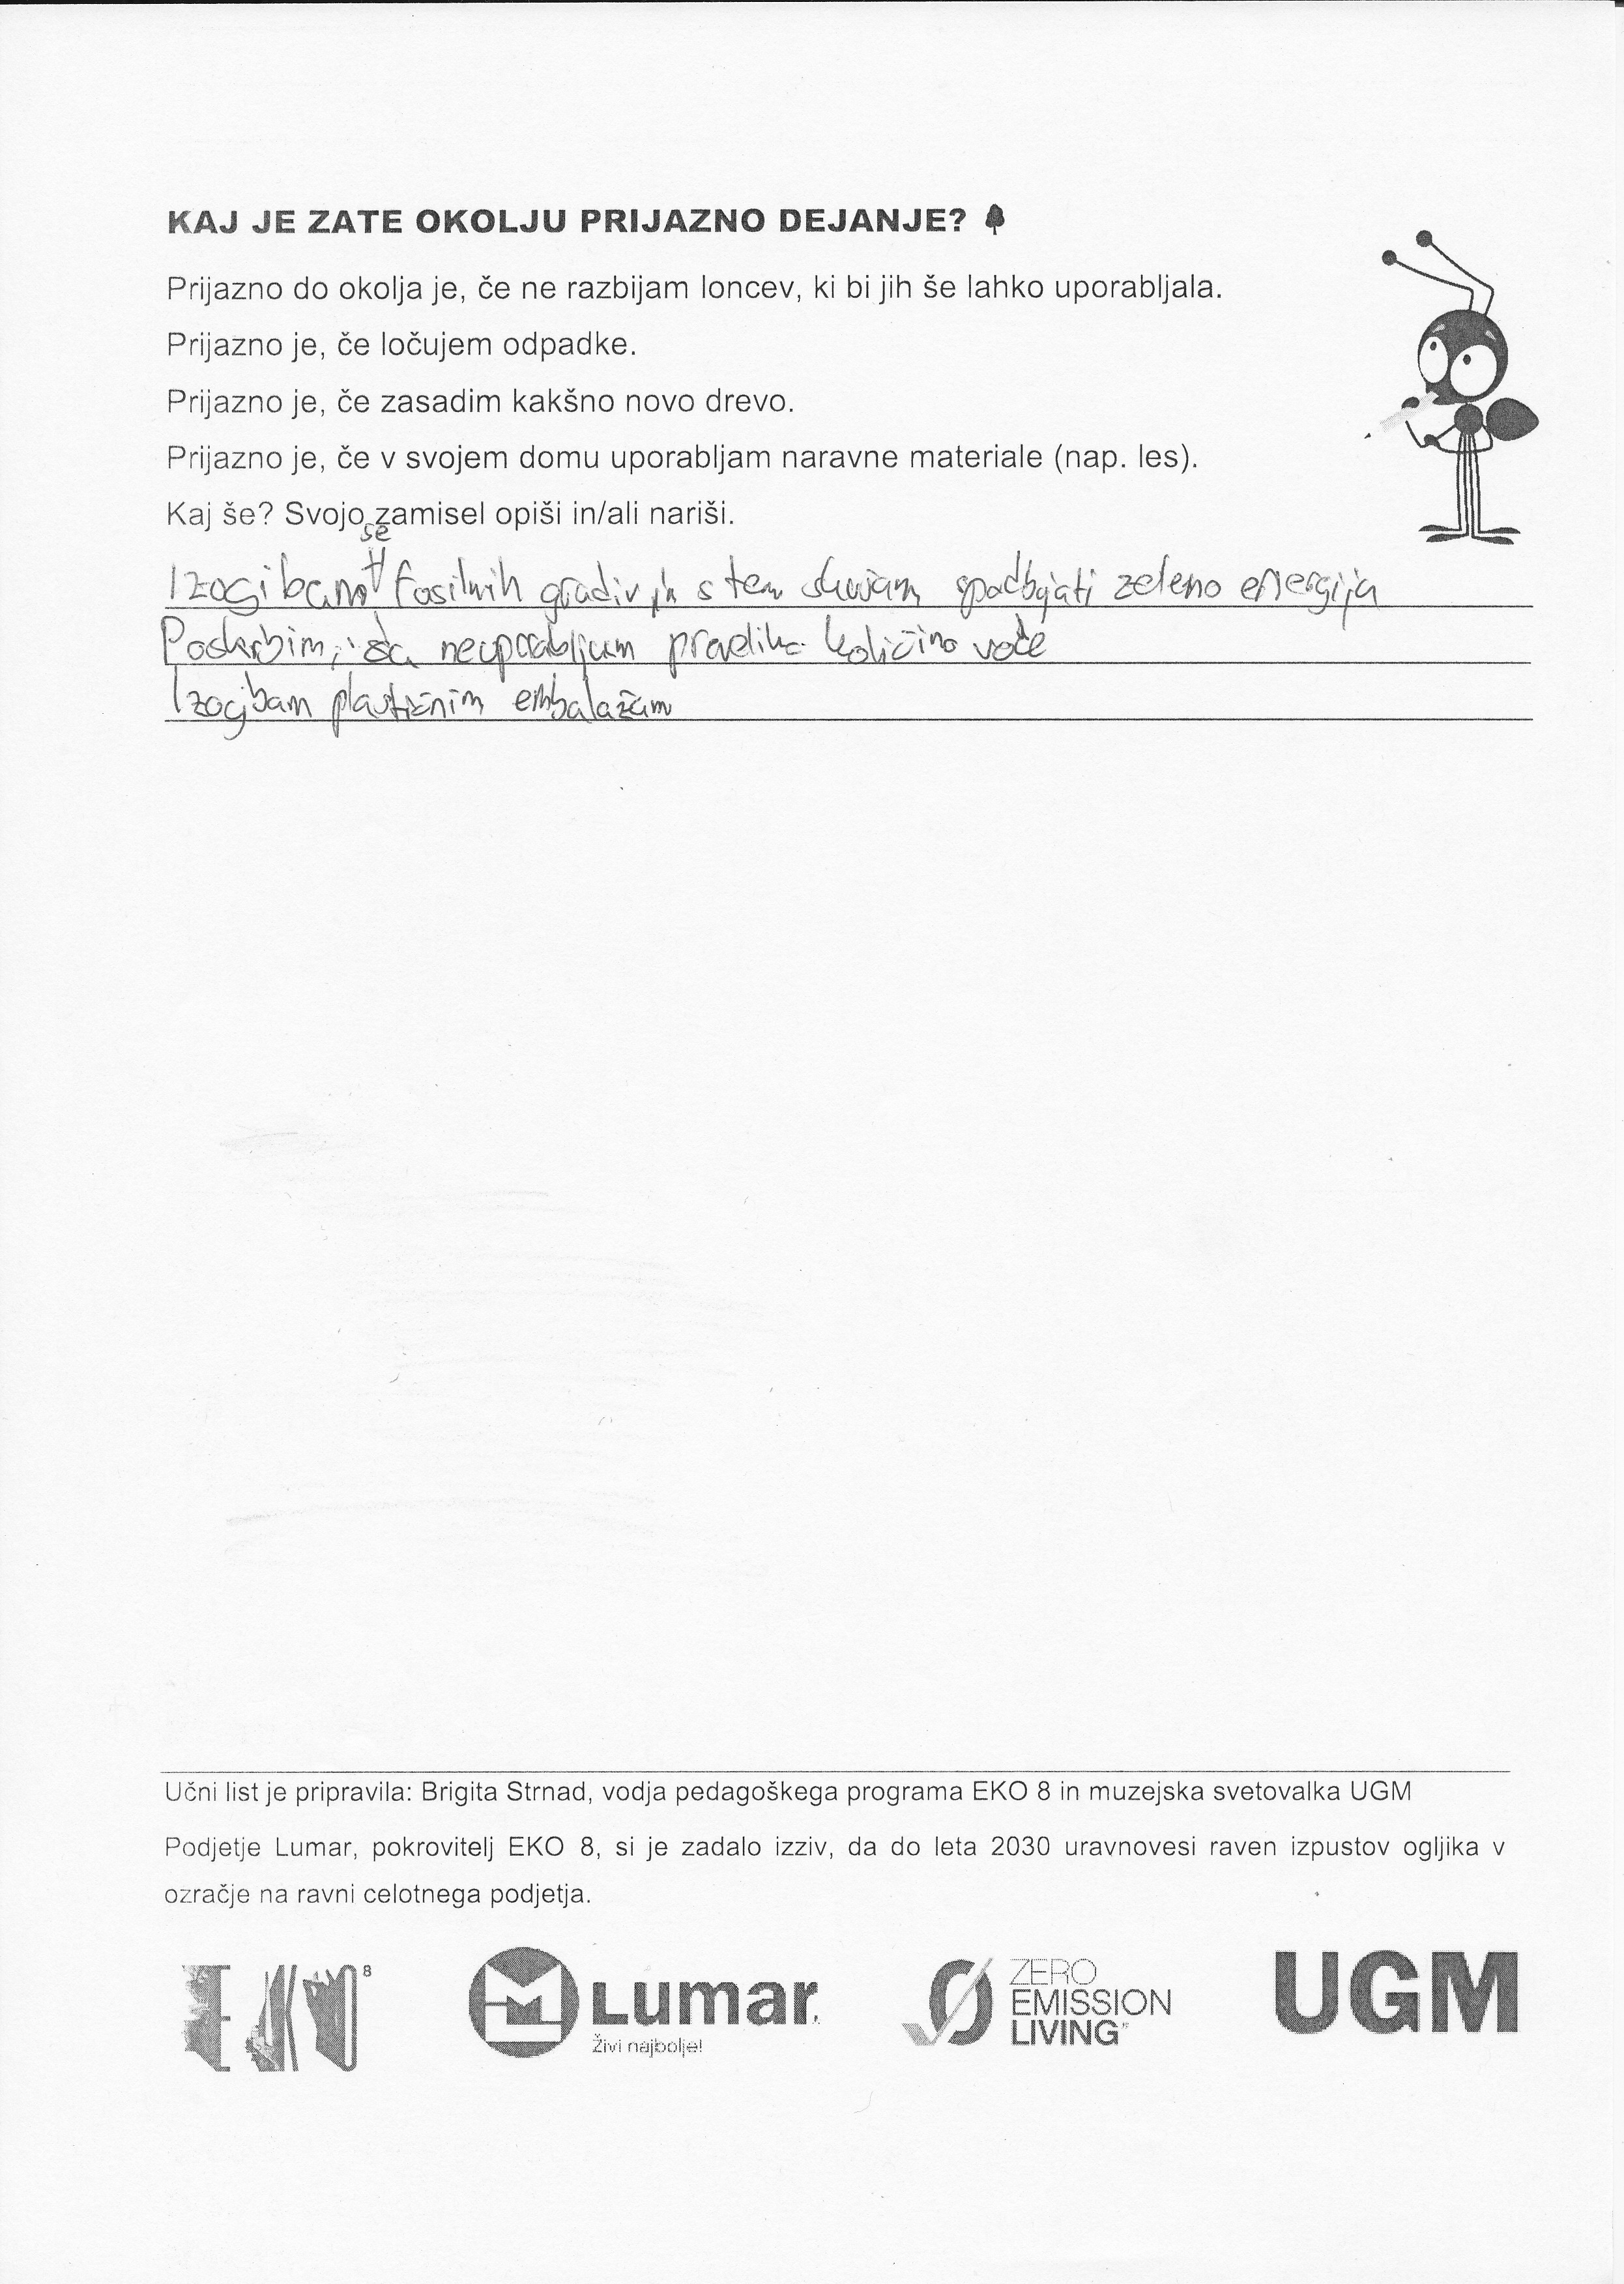 KAJ JE ZATE OKOLJU PRIJAZNO DEJANJE?
Prijazno do okolja je, če ne razbijam loncev, ki bi jih še lahko uporabljala.
Prijazno je, če ločujem odpadke.
Prijazno je, če zasadim kakšno novo drevo.
Prijazno je, če v svojem domu uporabljam naravne materiale (nap. les).
Kaj še? Svojo zamisel opiši in/ali nariši.
se
Izogibam fosilnih gradiv in s tem spodbujati zeleno energija
Poskrbim, da neuporabljam prevelika količino vode
Izogibam plastičnim embalažam
Učni list je pripravila: Brigita Strnad, vodja pedagoškega programa EKO 8 in muzejska svetovalka UGM
Podjetje Lumar, pokrovitelj EKO 8, si je zadalo izziv, da do leta 2030 uravnovesi raven izpustov ogljika v
ozračje na ravni celotnega podjetja.
EKO 8
Lumar
Živi najbolje!
ZERO
EMISSION
LIVING
UGM